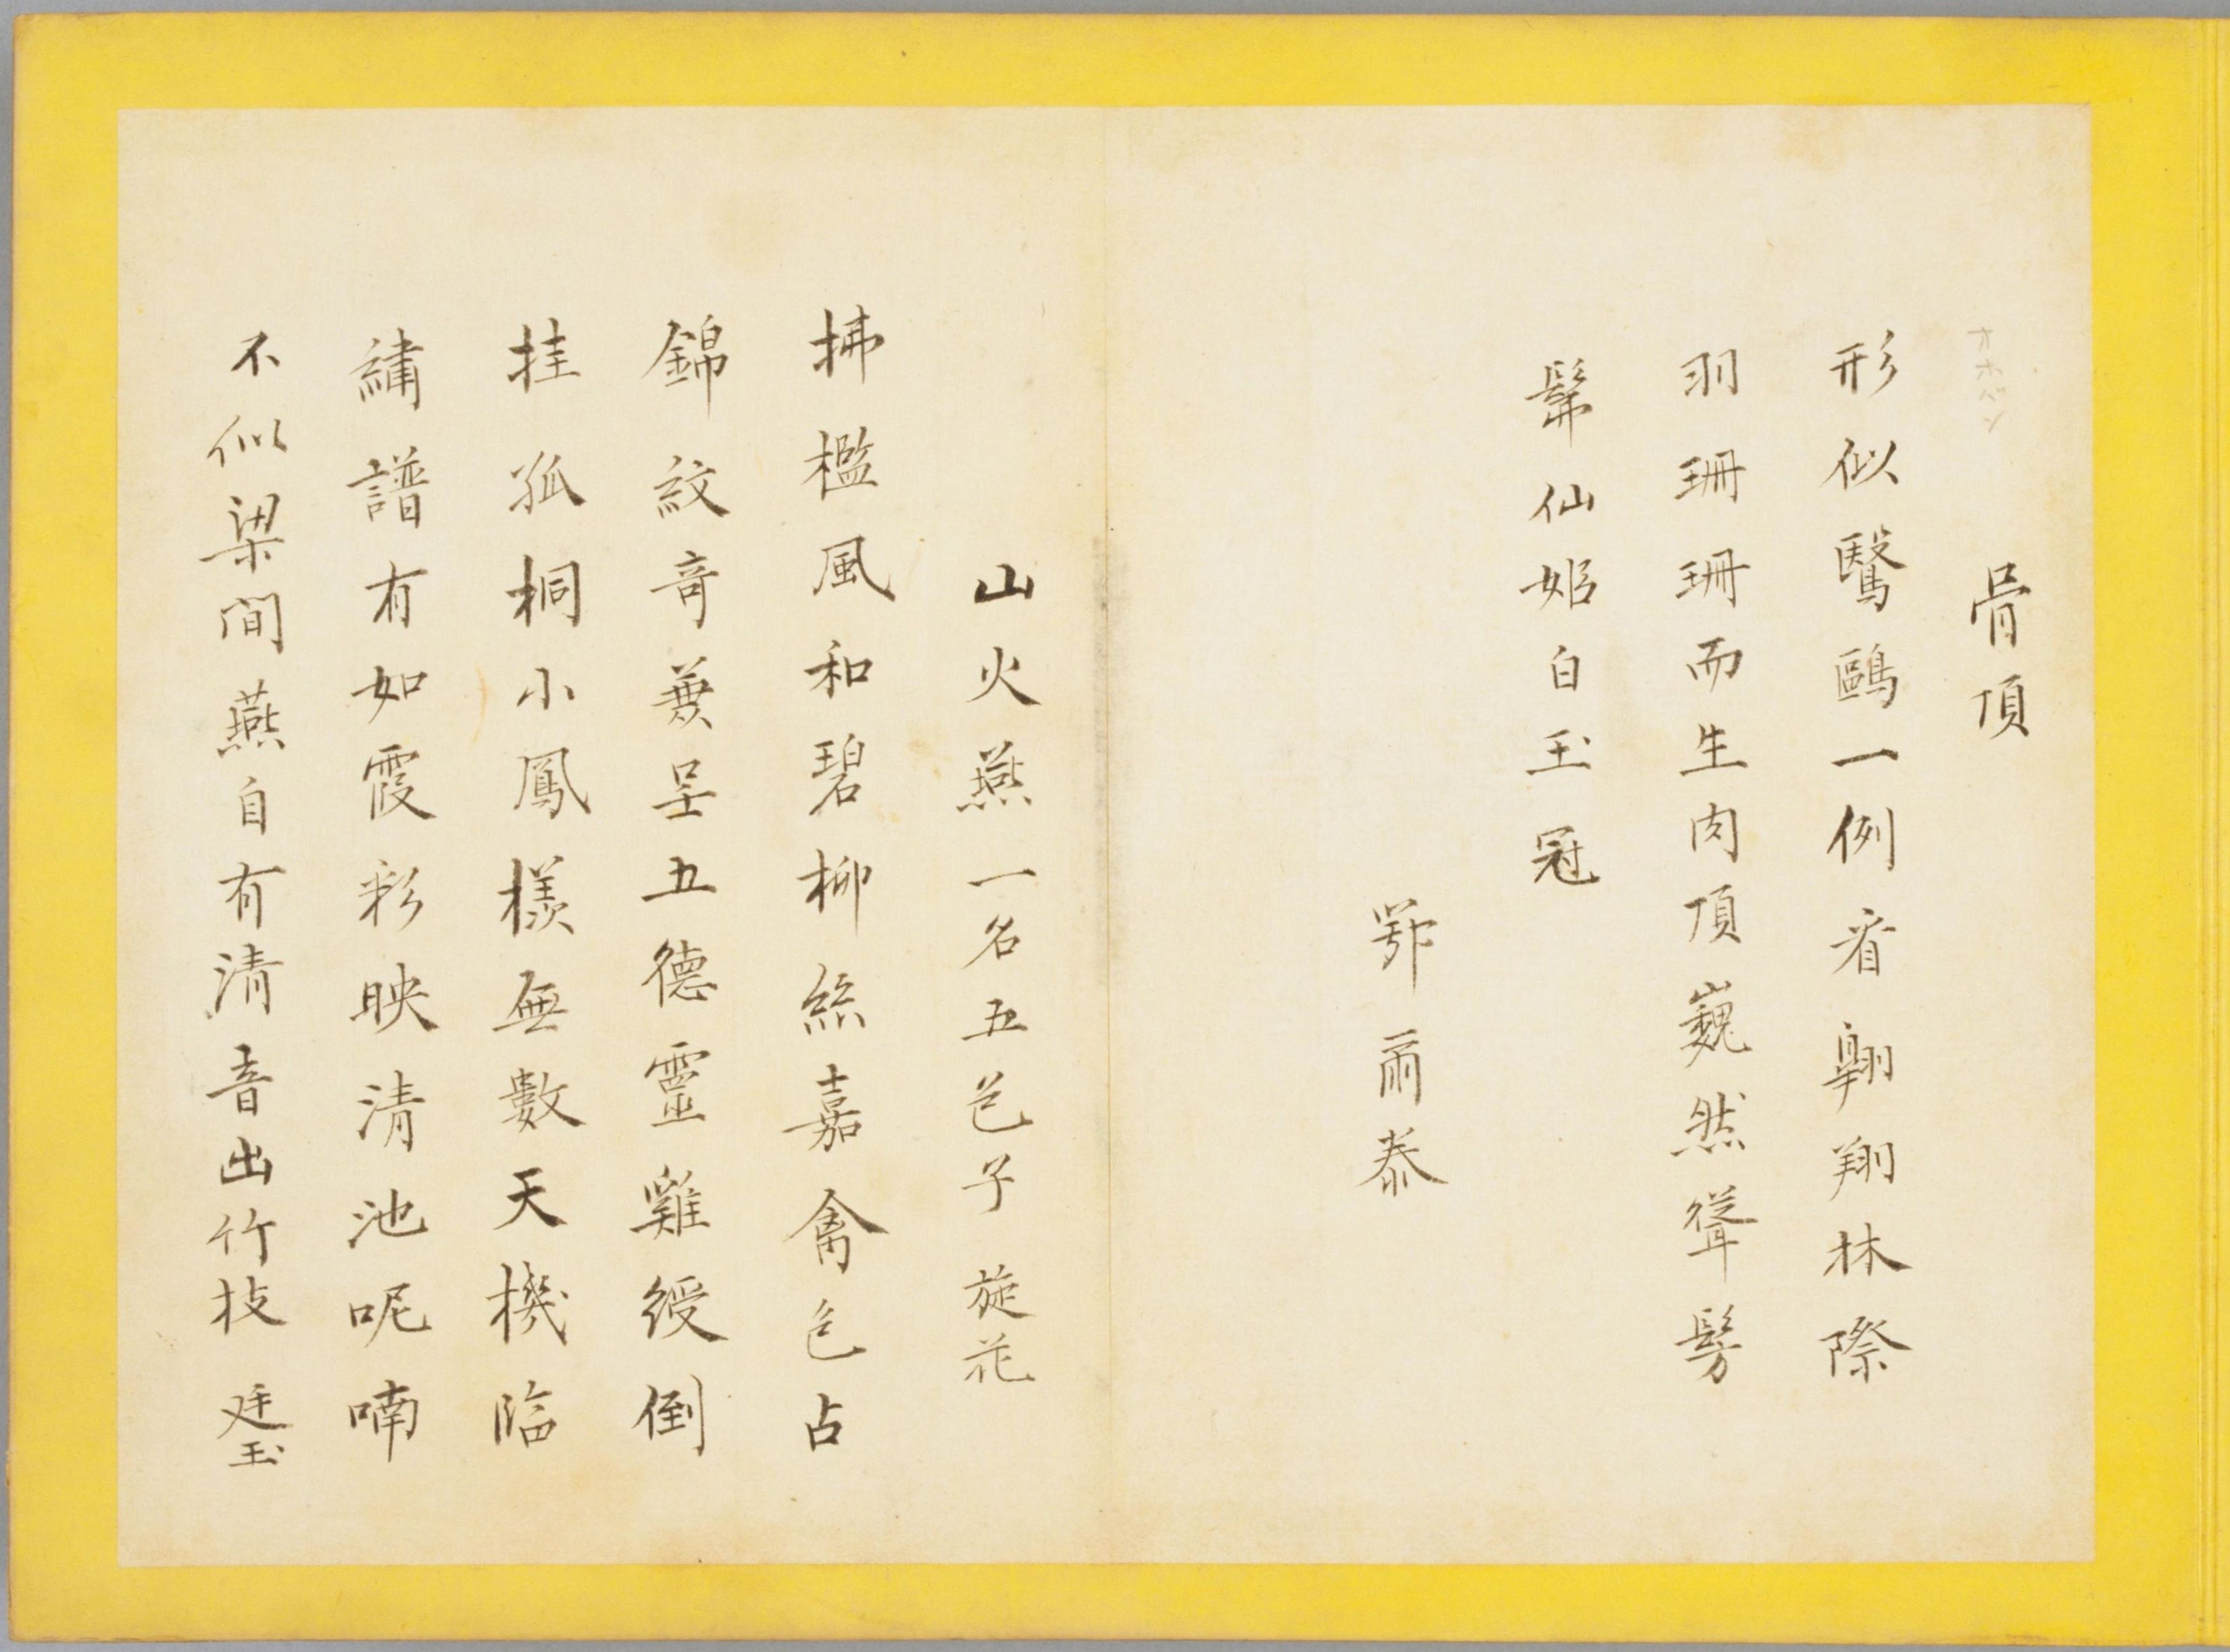 骨頂
形似鷖鷗一例看翱翔林際
羽珊珊而生肉頂巍然聳髣
髴仙姬白玉冠
鄂爾泰
山火燕一名五色子 旋花
拂檻風和碧柳絲嘉禽色占
錦紋奇兼呈五德靈雞綬倒
挂孤桐小鳳樣無數天機臨
繡譜有如霞彩映清池呢喃
不似梁間燕自有清音出竹枝 廷玉